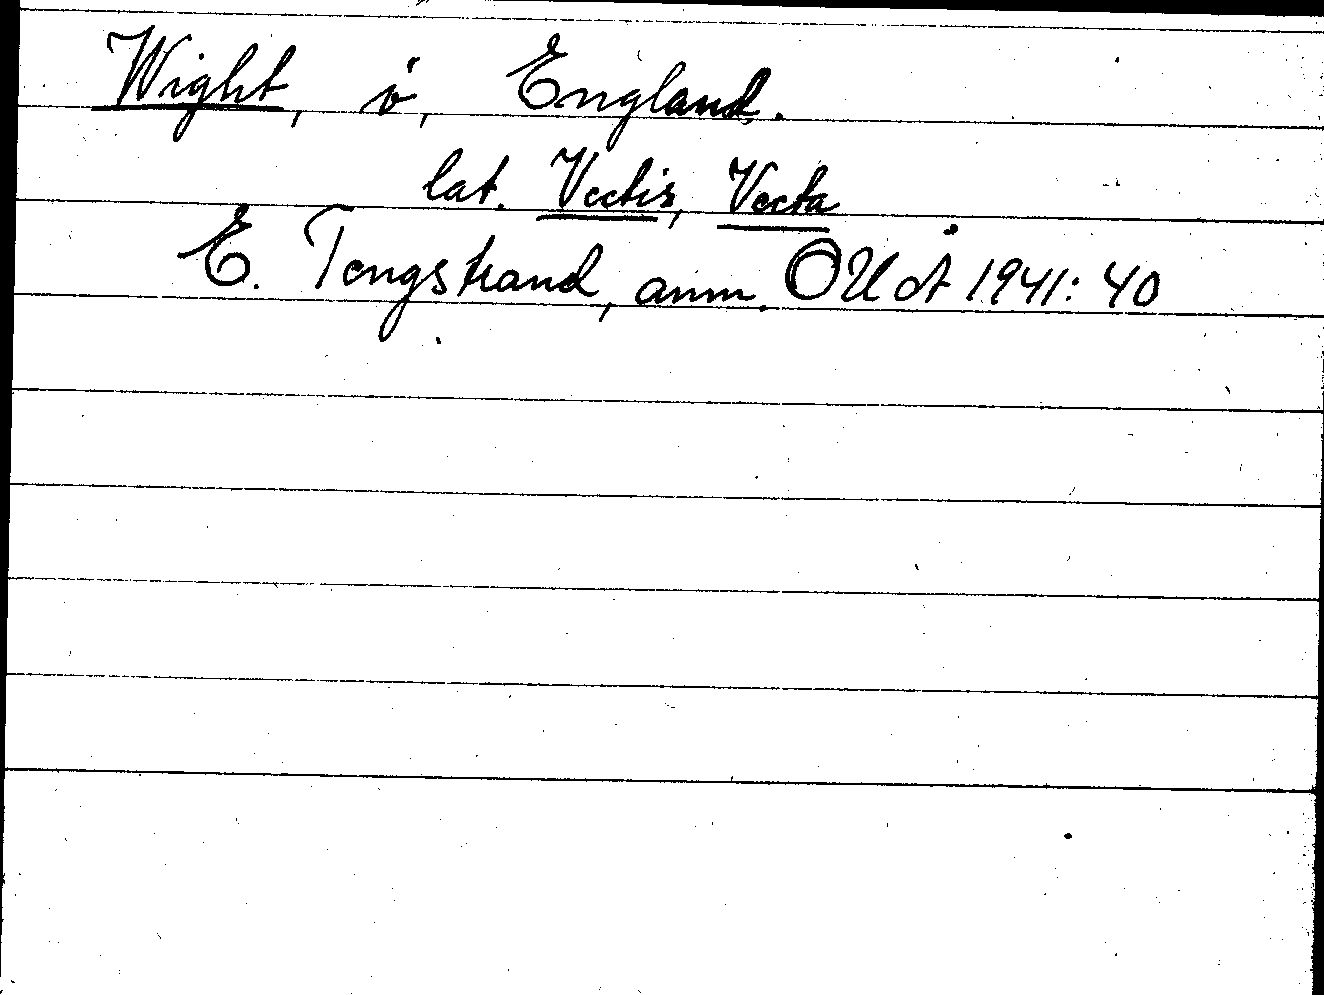 Wight, ö, England.
lat. Vectis, Vecta
E. Tengstrand, anm. OUÅ 1941: 40